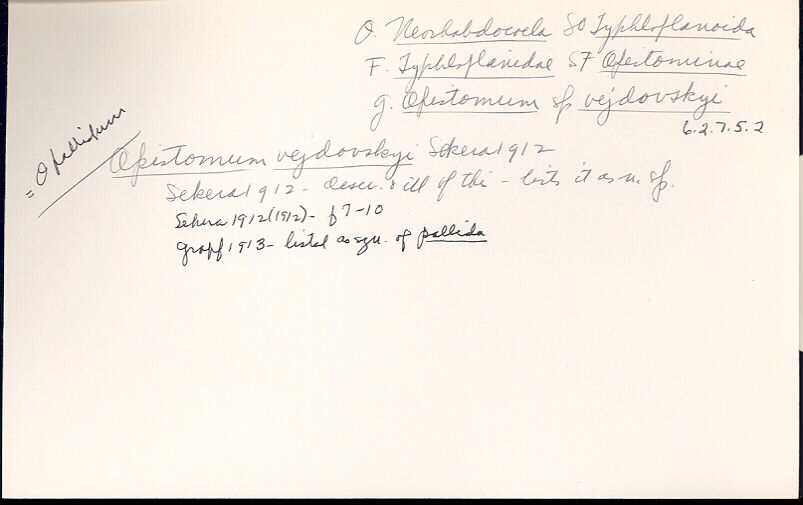 O. Neorhabdocoela SO Typhloplanoida
F. Typhloplanidae SF Opistominae
g. Opistomum sp vejdovskyi
6.2.7.5.2
= O pallidum
Opistomum vejdovskyi Sekera 1912
Sekera 1912 - descr. & ill of thi - lists it as n. sp.
Sekera 1912 (1912) - p 7-10
Graff 1913 - listed as syn. of pallida